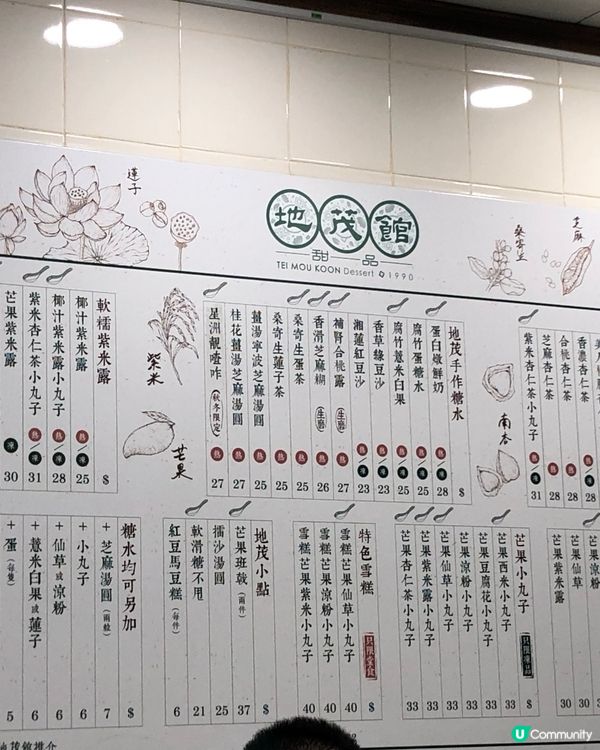 蓮子
地茂館
甜品
TEI MOU KOON Dessert 1990
桑寄生
芝麻
香濃杏仁茶 熱/凍 28
合桃杏仁茶 熱 28
芝麻杏仁茶 熱 28
紫米杏仁茶小丸子 熱/凍 31
南杏
地茂手作糖水 $
蛋白燉鮮奶 熱/凍 28
腐竹蛋糖水 熱/凍 25
腐竹薏米白果 熱/凍 25
香草綠豆沙 熱/凍 23
湘蓮紅豆沙 熱/凍 23
補腎合桃露(生磨) 熱 27
香滑芝麻糊(生磨) 熱 26
桑寄生蛋茶 熱 25
桑寄生蓮子茶 熱 25
薑湯寧波芝麻湯圓 熱 25
桂花薑湯芝麻湯圓 熱 27
星洲靚喳咋(秋冬限定) 熱 27
紫米
芒果
軟糯紫米露 $
椰汁紫米露 熱/凍 25
椰汁紫米露小丸子 熱/凍 28
紫米杏仁茶小丸子 熱/凍 31
芒果紫米露 凍 30
芒果涼粉 30
芒果仙草 30
芒果紫米露
芒果小丸子 只限凍品 $
芒果西米小丸子 33
芒果豆腐花小丸子 33
芒果涼粉小丸子 33
芒果仙草小丸子 33
芒果紫米露小丸子 33
芒果杏仁茶小丸子 33
特色雪糕 只限堂食 $
雪糕芒果仙草小丸子 40
雪糕芒果涼粉小丸子 40
雪糕芒果紫米小丸子 40
地茂小點 $
芒果班戟(兩件) 37
擂沙湯圓 25
軟滑糖不甩 21
紅豆馬豆糕(每件) 6
糖水均可另加 $
+芝麻湯圓(兩粒) 7
+小丸子 6
+仙草或涼粉 6
+薏米白果或蓮子 6
+蛋(每隻) 5
地茂館推介
U Community